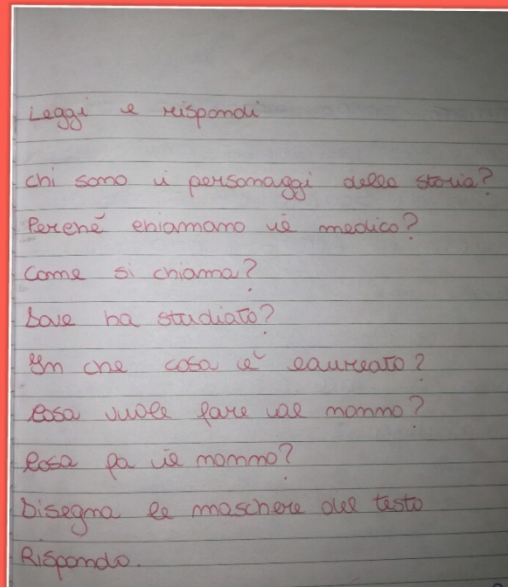 Leggi e rispondi
chi sono i personaggi della storia?
Perché chiamano il medico?
Come si chiama?
Dove ha studiato?
In che cosa è laureato?
Cosa vuole fare al nonno?
Cosa fa il nonno?
Disegna le maschere del testo
Rispondo.